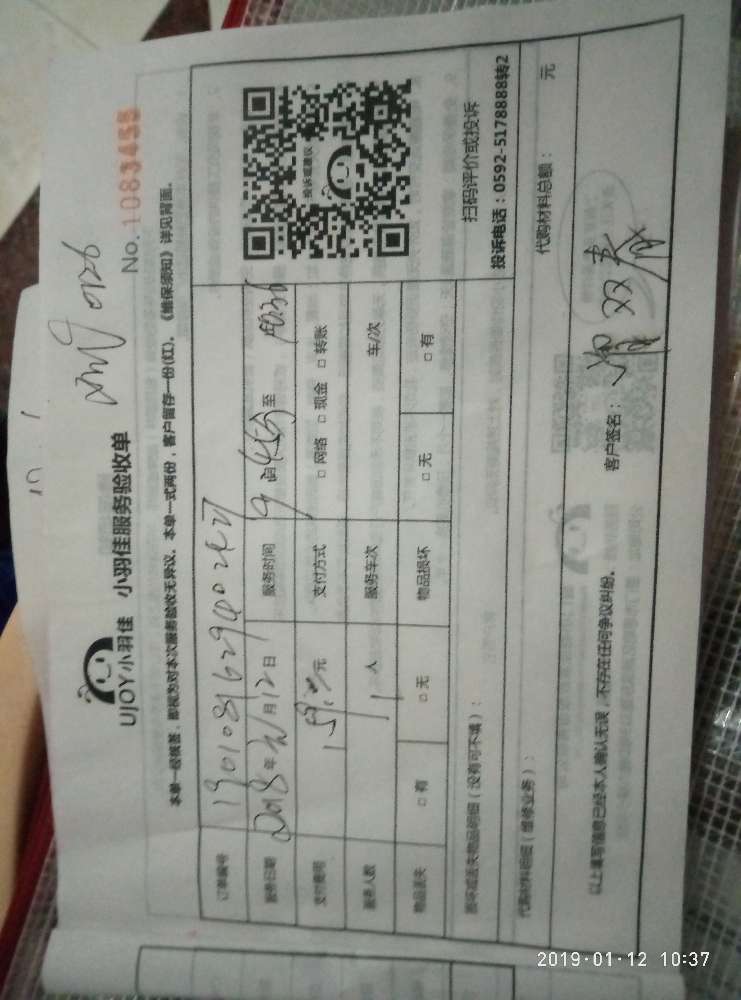 UJOY小羽佳
小羽佳服务验收单
No.1083455
本单一经核签，即视为对本次服务验收无异议。本单一式两份，客户留存一份(红)。《维保须知》详见背面。
订单编号
服务日期 2018年 月12日 服务时间 9 至
支付费用 元 支付方式 □网络 □现金 □转账
服务人数 1 人 服务车次 车/次
物品丢失 □有 □无 物品损坏 □无 □有
投诉或建议
扫码评价或投诉
投诉电话：0592-5178888转2
损坏或丢失物品明细（没有可不填）：
代购材料明细（维修业务）： 代购材料总额： 元
以上填写信息已经本人确认无误，不存在任何争议纠纷。
客户签名：
2019-01-12 10:37